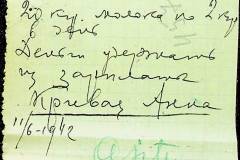 молока по 2 кр
в день
Деньги удержать
из зарплаты
Кривая Анна
11/6-1942